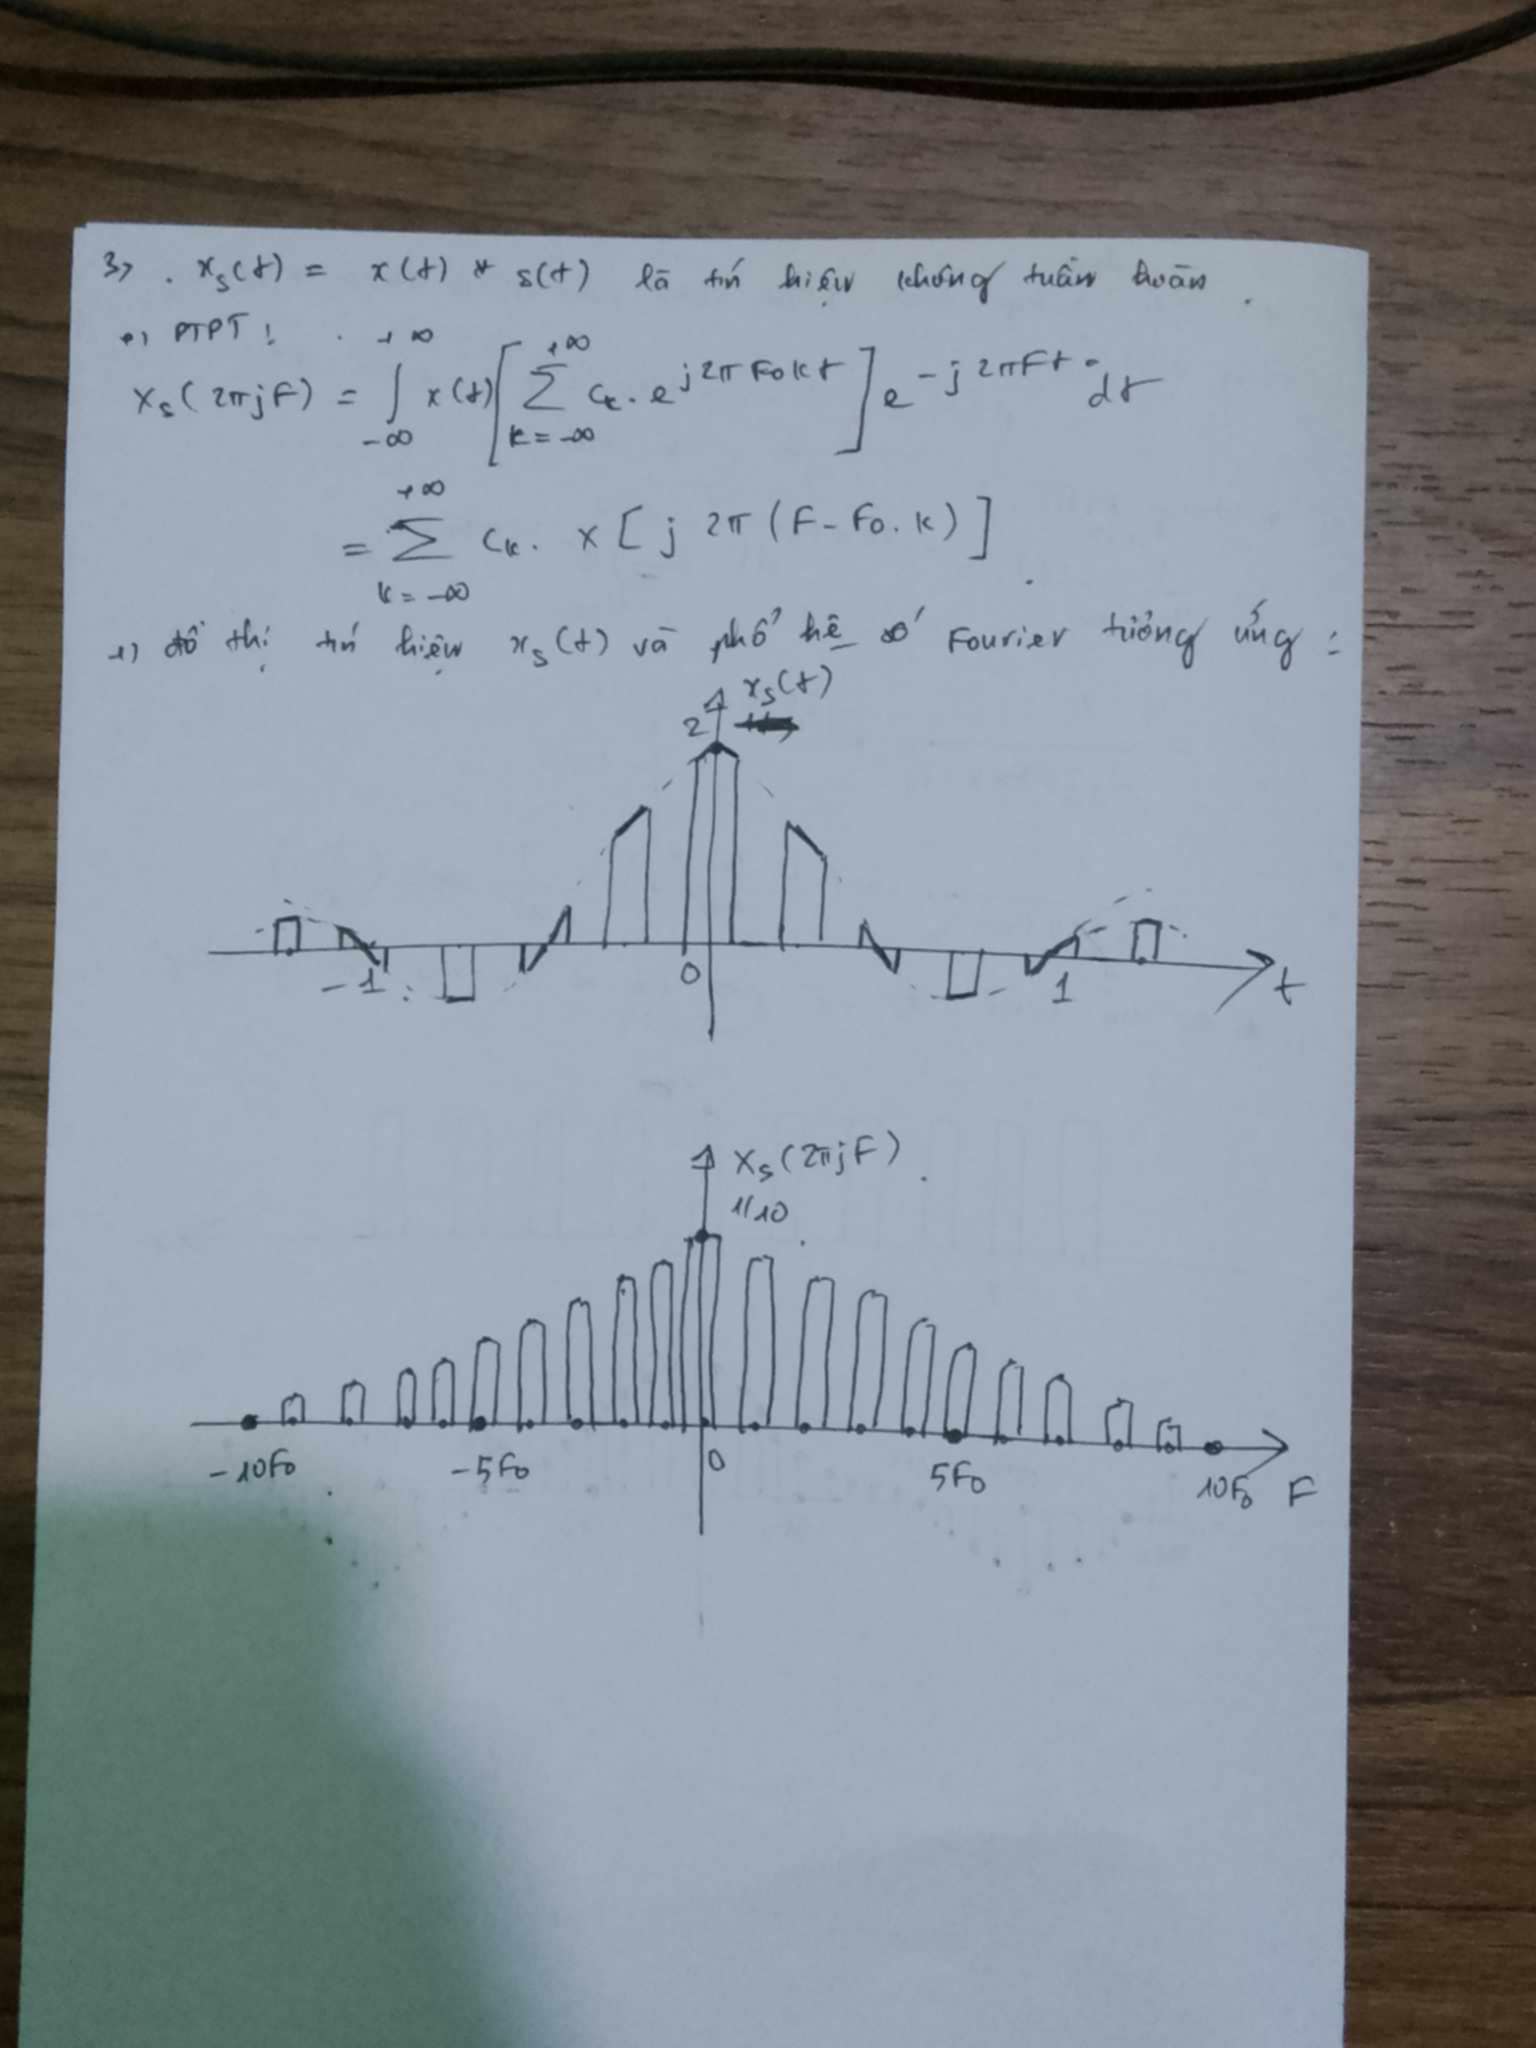 3> . xₛ(t) = x(t) * s(t) là tín hiệu không tuần hoàn .
+) PTPT :
Xₛ(2πjF) = ∫_{-∞}^{+∞} x(t) [ Σ_{k=-∞}^{+∞} cₖ. e^{j2πF₀kt} ] e^{-j2πFt} dt
= Σ_{k=-∞}^{+∞} cₖ. X[j 2π(F-F₀.k)]
+) đồ thị tín hiệu xₛ(t) và phổ hệ số Fourier tương ứng :
xₛ(t)
2
-1 0 1 t
Xₛ(2πjF)
1/10
-10F₀ -5F₀ 0 5F₀ 10F₀ F